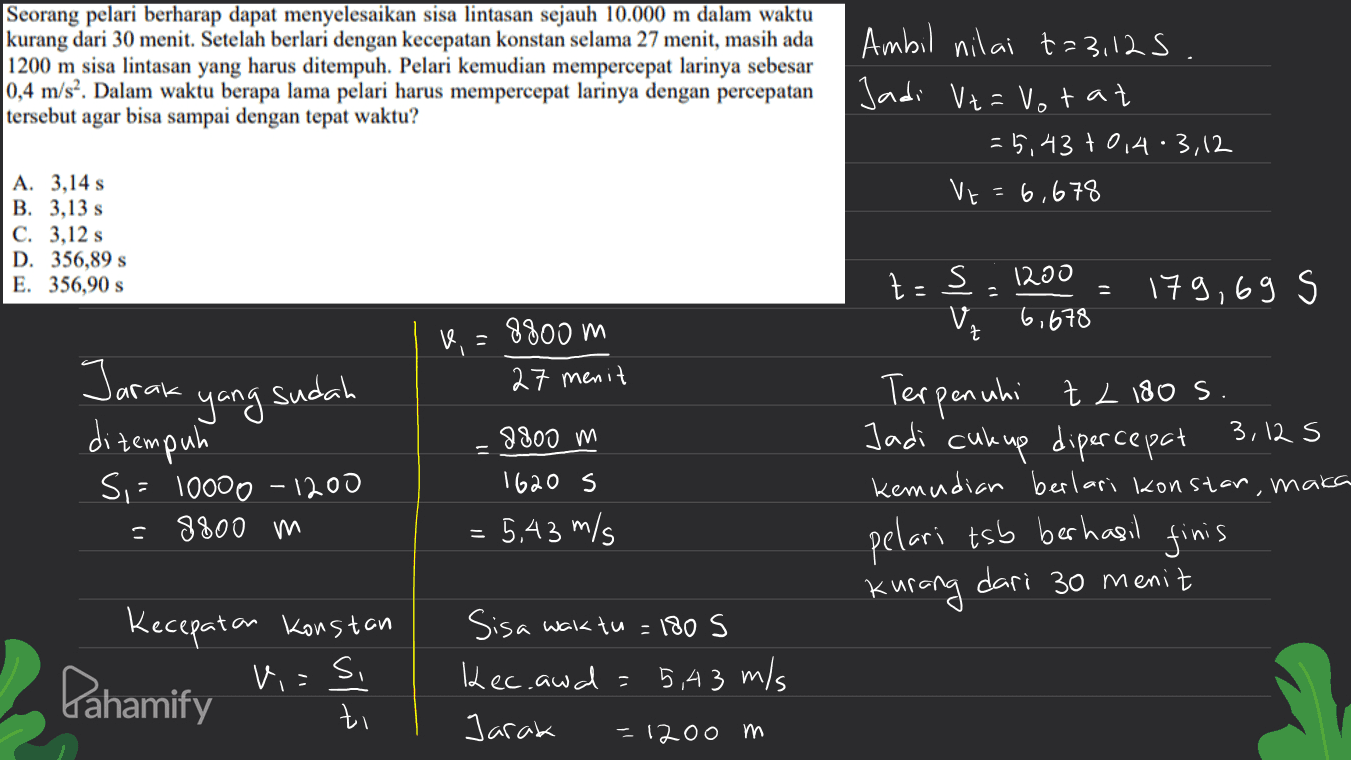 Seorang pelari berharap dapat menyelesaikan sisa lintasan sejauh 10.000 m dalam waktu
kurang dari 30 menit. Setelah berlari dengan kecepatan konstan selama 27 menit, masih ada
1200 m sisa lintasan yang harus ditempuh. Pelari kemudian mempercepat larinya sebesar
0,4 m/s². Dalam waktu berapa lama pelari harus mempercepat larinya dengan percepatan
tersebut agar bisa sampai dengan tepat waktu?
A. 3,14 s
B. 3,13 s
C. 3,12 s
D. 356,89 s
E. 356,90 s
Jarak yang sudah
ditempuh
S₁ = 10000 - 1200
= 8800 m
Kecepatan konstan
V₁ = S₁
t₁
V₁ = 8800 m
27 menit
= 8800 m
1620 s
= 5,43 m/s
Sisa waktu = 180 S
Kec.awal = 5,43 m/s
Jarak = 1200 m
Ambil nilai t = 3,12 S.
Jadi Vt = V₀ + at
= 5,43 + 0,4 · 3,12
Vt = 6,678
t = S = 1200 = 179,69 S
Vt 6,678
Terpenuhi t < 180 s.
Jadi cukup dipercepat 3,12 S
kemudian berlari konstan, maka
pelari tsb berhasil finis
kurang dari 30 menit
Pahamify